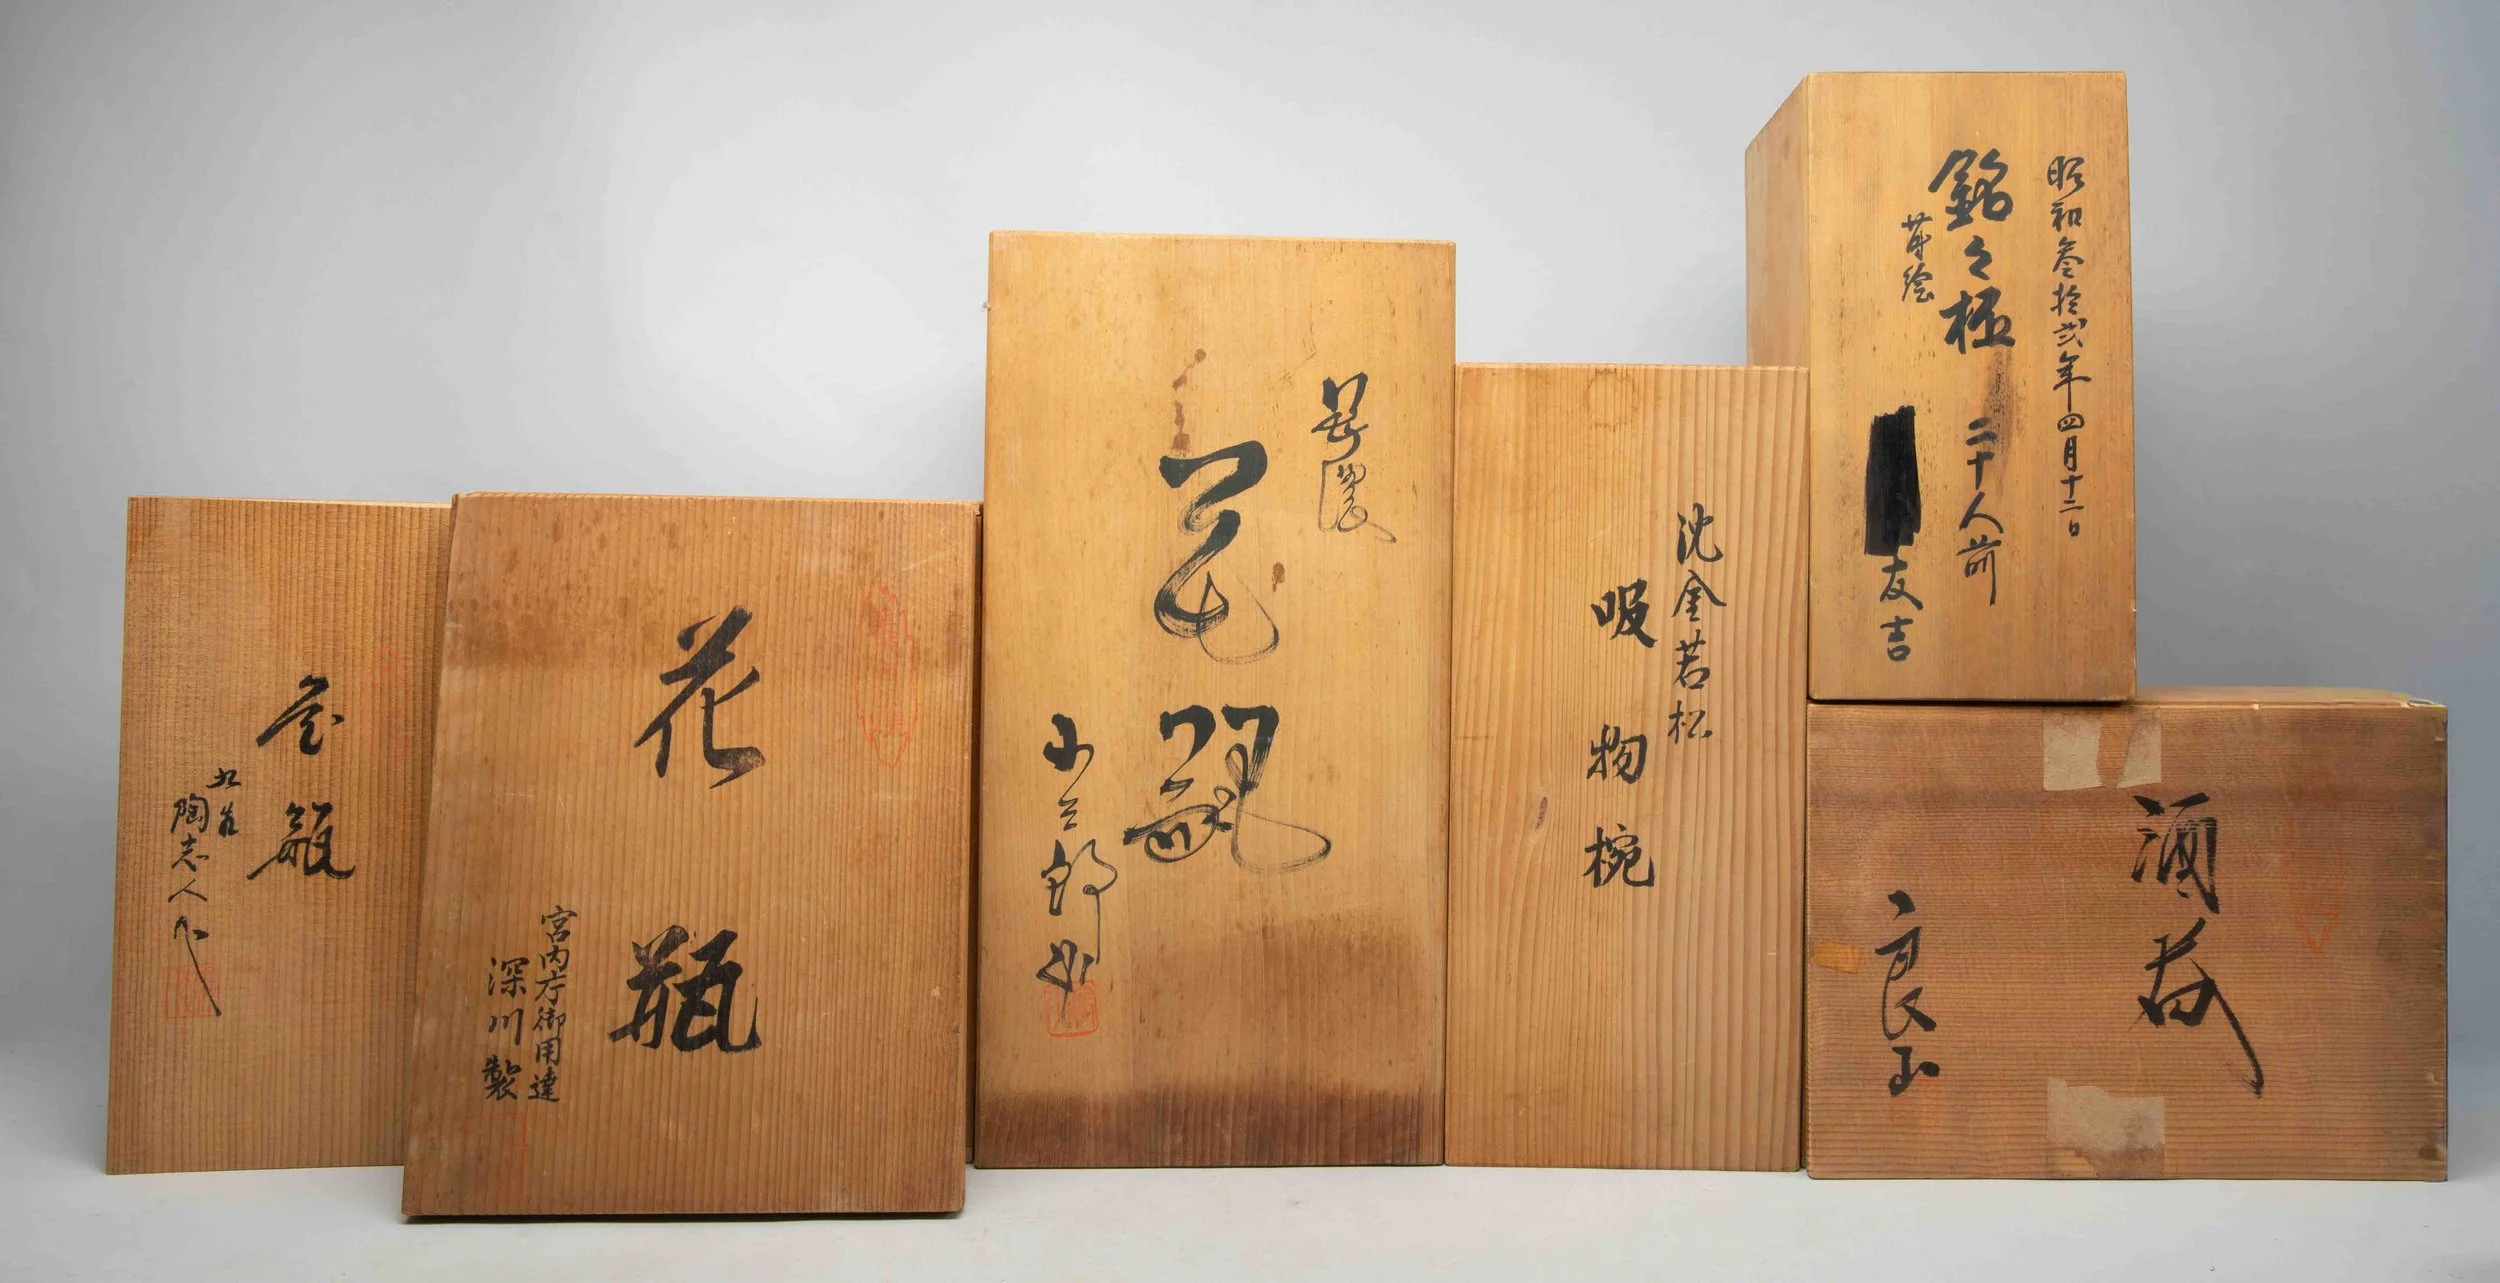 花瓶
九谷
陶志人作
花瓶
宮内庁御用達
深川製
花瓶
沈金若松
吸物椀
昭和参拾弐年四月十二日
銘々 二十人前
蒔絵
友吉
酒
良山